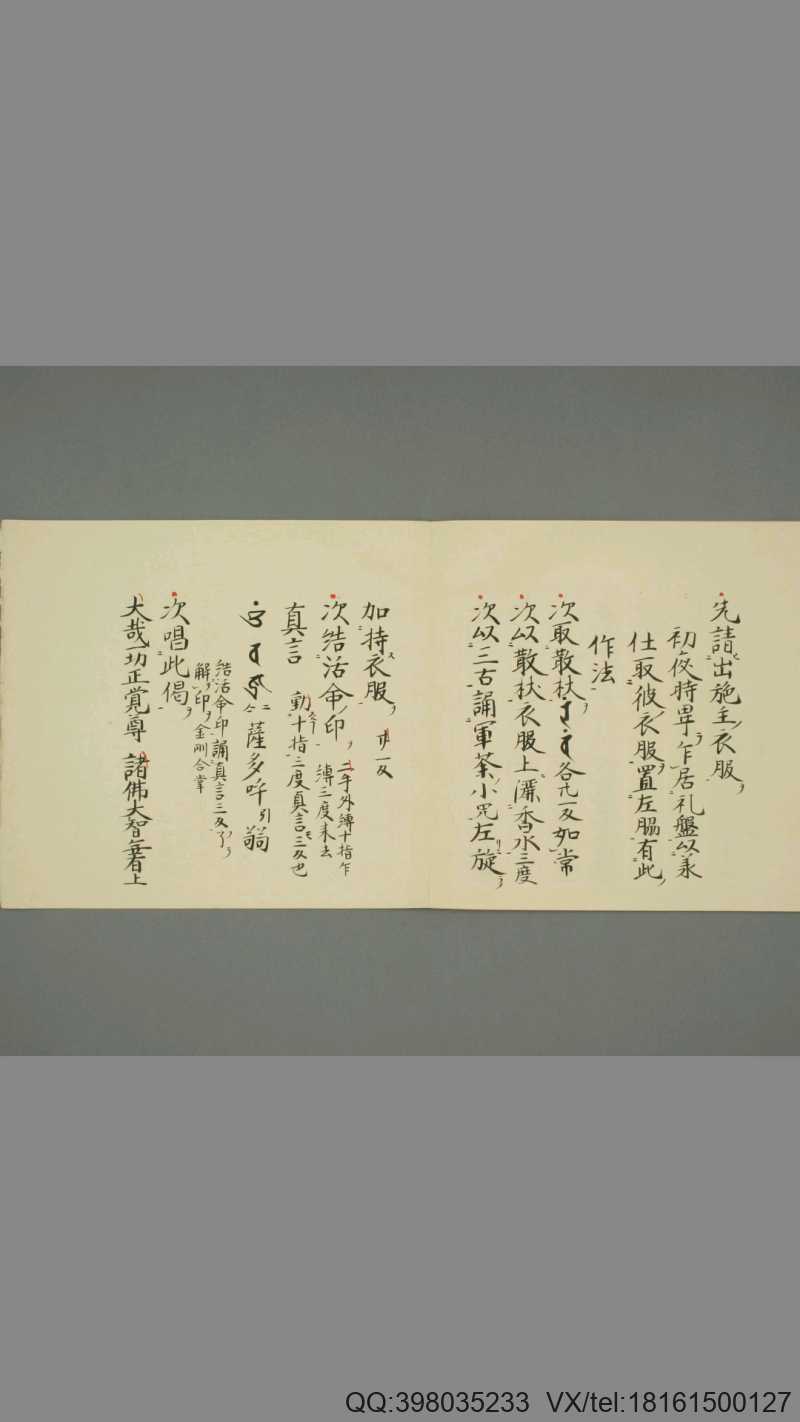 先請出施主衣服
初夜時畢乍居礼盤以承
仕取彼衣服置左脇有此
作法
次取散杖 各廿一反如常
次以散杖衣服上灑香水三度
次以三古誦軍荼小咒左旋
加持衣服 廿一反
次結活命印 二手外縛十指乍
縛三度来去
真言 動十指三度真言三反也
二合 薩多吽引 翁
結活命印誦真言三反了
解印金剛合掌
次唱此偈
大哉一切正覚尊 諸佛大智無有上
QQ:398035233 VX/tel:18161500127